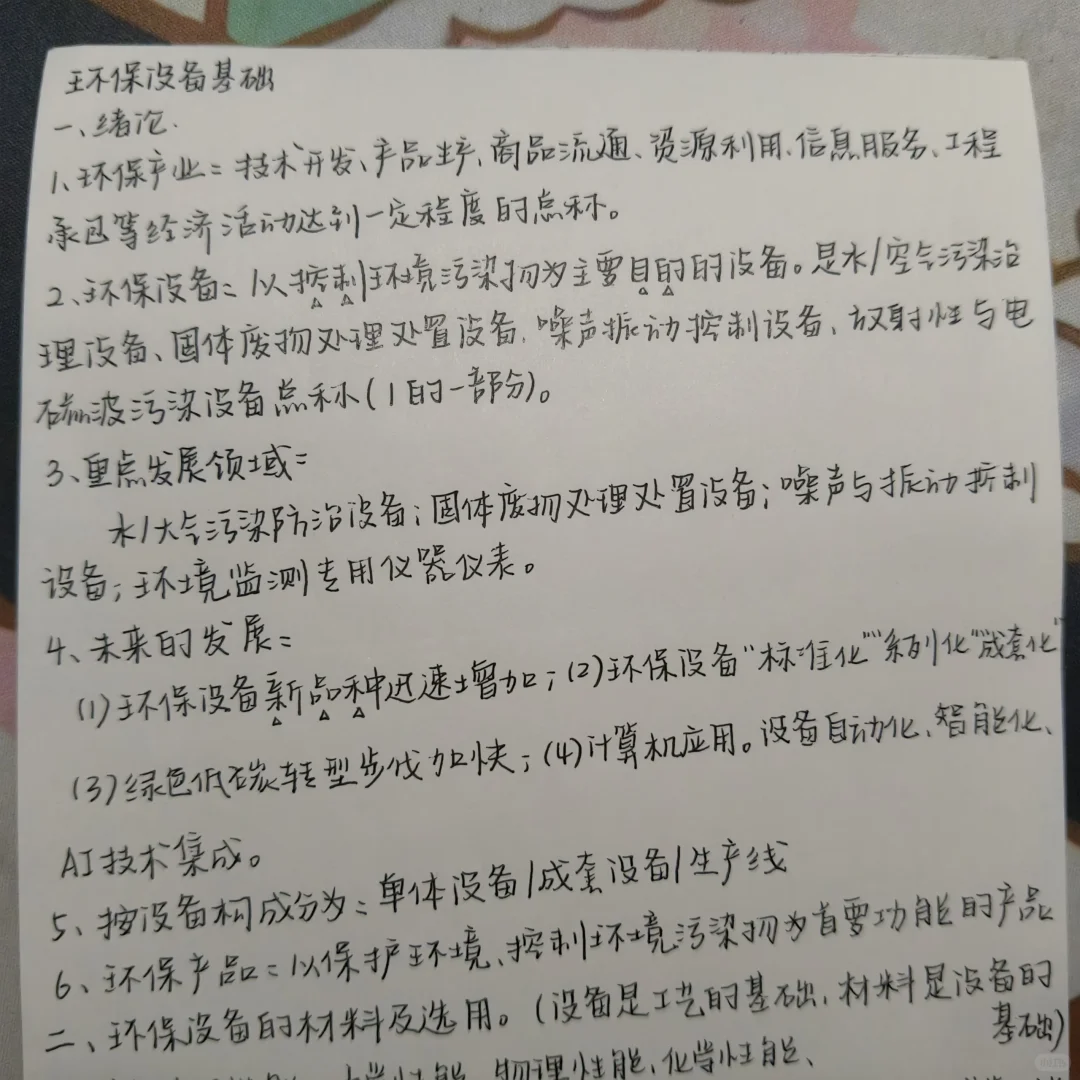 环保设备基础
一、绪论.
1、环保产业=技术开发、产品生产、商品流通、资源利用、信息服务、工程
承包等经济活动达到一定程度的总称。
2、环保设备=以控制环境污染物为主要目的的设备。是水/空气污染治
理设备、固体废物处理处置设备、噪声振动控制设备、放射性与电
磁波污染设备总称(1的一部分)。
3、重点发展领域=
水/大气污染防治设备;固体废物处理处置设备;噪声与振动控制
设备;环境监测专用仪器仪表。
4、未来的发展=
(1)环保设备新品种迅速增加;(2)环保设备“标准化”“系列化”“成套化”
(3)绿色低碳转型步伐加快;(4)计算机应用。设备自动化、智能化、
AI技术集成。
5、按设备构成分为=单体设备/成套设备/生产线
6、环保产品=以保护环境、控制环境污染物为首要功能的产品
二、环保设备的材料及选用。(设备是工艺的基础,材料是设备的
基础)
物理性能、化学性能、